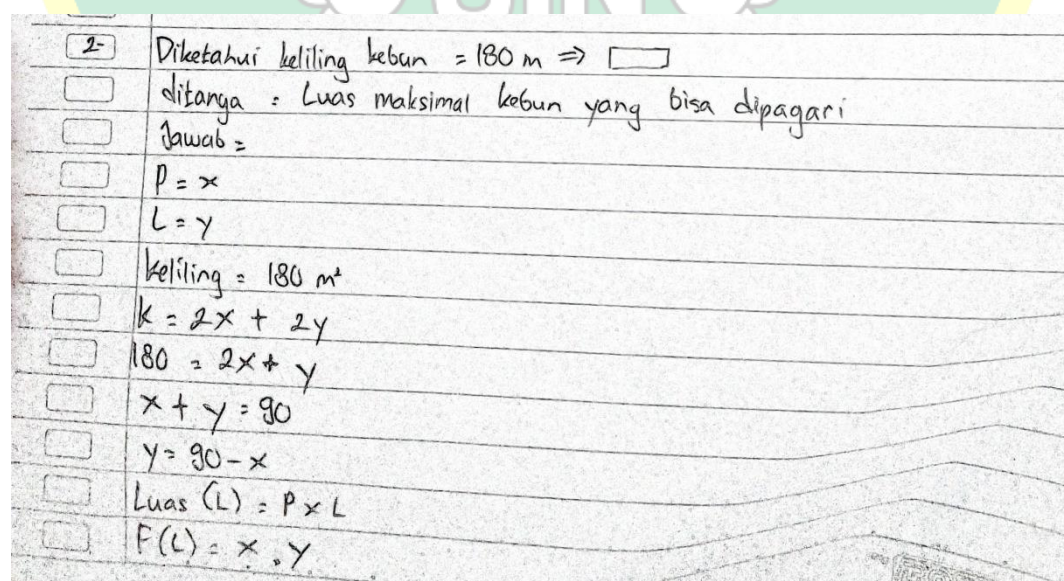 2-
Diketahui keliling kebun = 180 m ⇒ ▭
ditanya : Luas maksimal kebun yang bisa dipagari
Jawab =
P = x
L = y
keliling = 180 m²
K = 2x + 2y
180 = 2x + y
x + y = 90
y = 90 - x
Luas (L) = P x L
F(L) = x . y